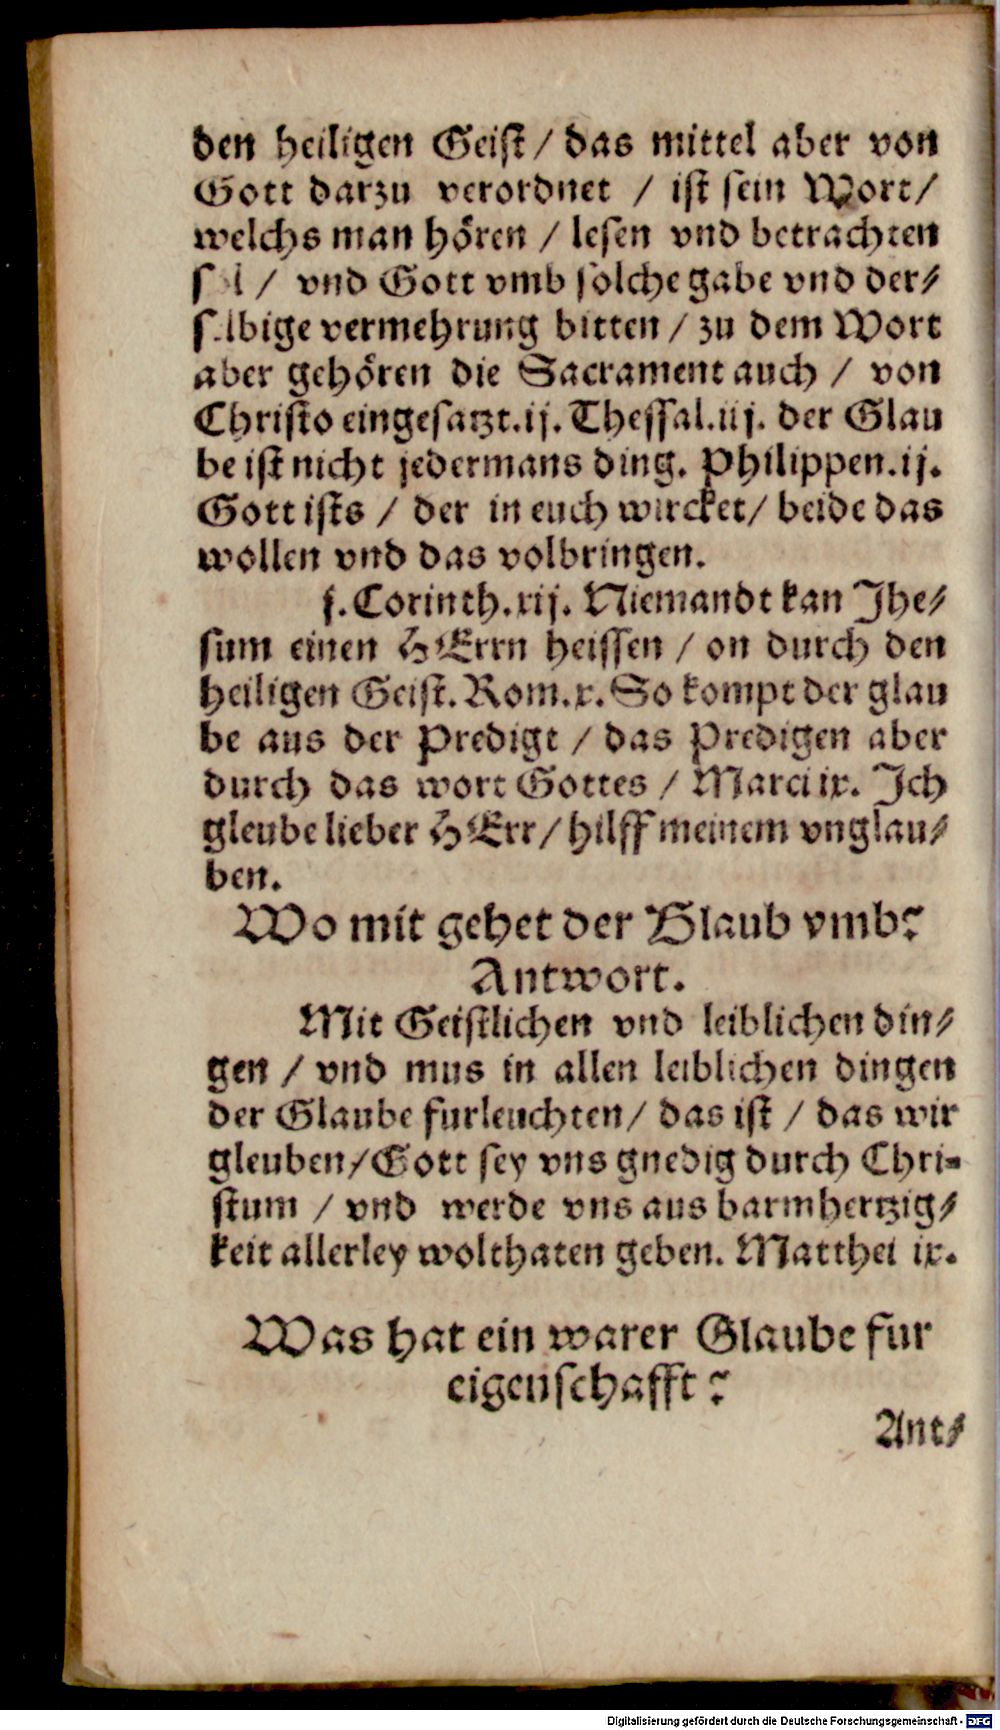 den heiligen Geist / das mittel aber von
Gott darzu verordnet / ist sein Wort /
welchs man hören / lesen vnd betrachten
sol / vnd Gott vmb solche gabe vnd der-
selbige vermehrung bitten / zu dem Wort
aber gehören die Sacrament auch / von
Christo eingesatzt. ij. Thessal. iij. der Glau
be ist nicht jedermans ding. Philippen. ij.
Gott ists / der in euch wircket / beide das
wollen vnd das volbringen.
j. Corinth. xij. Niemandt kan Jhe-
sum einen HErrn heissen / on durch den
heiligen Geist. Rom. x. So kompt der glau
be aus der Predigt / das Predigen aber
durch das wort Gottes / Marci ix. Ich
gleube lieber HErr / hilff meinem vnglau-
ben.
Wo mit gehet der Glaub vmb?
Antwort.
Mit Geistlichen vnd leiblichen din-
gen / vnd mus in allen leiblichen dingen
der Glaube furleuchten / das ist / das wir
gleuben / Gott sey vns gnedig durch Chri-
stum / vnd werde vns aus barmhertzig-
keit allerley wolthaten geben. Matthei ix.
Was hat ein warer Glaube fur
eigenschafft?
Ant-
Digitalisierung gefördert durch die Deutsche Forschungsgemeinschaft - DFG